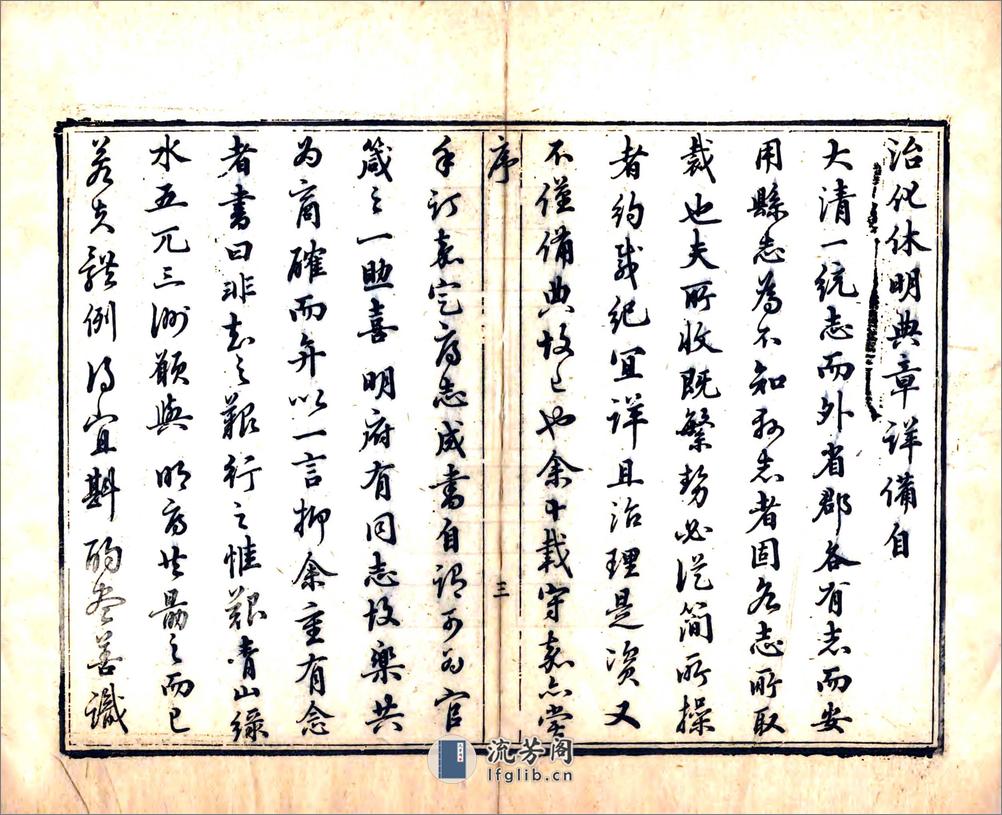 治化休明典章详備自
大清一統志而外省郡各有志而安
用縣志為不知縣志者固各志所取
裁也夫所收既繁勢必從簡所操
者約裁紀宜详且治理是资又
不僅備典故已也余十載守嘉亦嘗
序
三
手訂嘉定府志成書自謂可為官
箴之一助喜明府有同志故樂共
為商確而弁以一言抑余重有念
者書曰非知之艱行之惟艱青山綠
水五兀三洲願與明府共勗之而已
若夫體例得宜斟酌盡善識
流芳阁
lfglib.cn